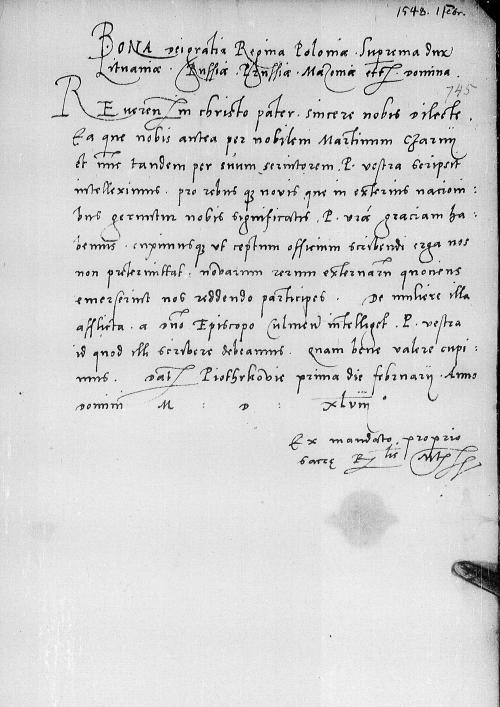 1548. 1 febr.
BONA dei gratia Regina Poloniæ. Suprema dux
Lituaniæ. Russiæ. Prussiæ. Mazoviæ etc. domina.
745
REveren in christo pater. sincere nobis dilecte.
Ea que nobis antea per nobilem Martinum Czarnij
et nunc tandem per suum scriptorem P. vestra scripsit
intelleximus. pro rebus novis que in exteris nacioni:
bus geruntur nobis significatis. P. vræ graciam ha:
bemus. cupimusque ut ceptum officium scribendi erga nos
non pretermittat. novarum rerum externarum quociens
emerserint nos reddendo participes. De muliere illa
afflicta. a dno Episcopo Culmen intelliget. P. vestra
id quod illi scribere debeamus. quam bene valere cupi:
mus. Dat Piothrkoviæ prima die februarij. Anno
domini M : D : xlviij°
Ex mandato proprio
sacrę R tis Mtis